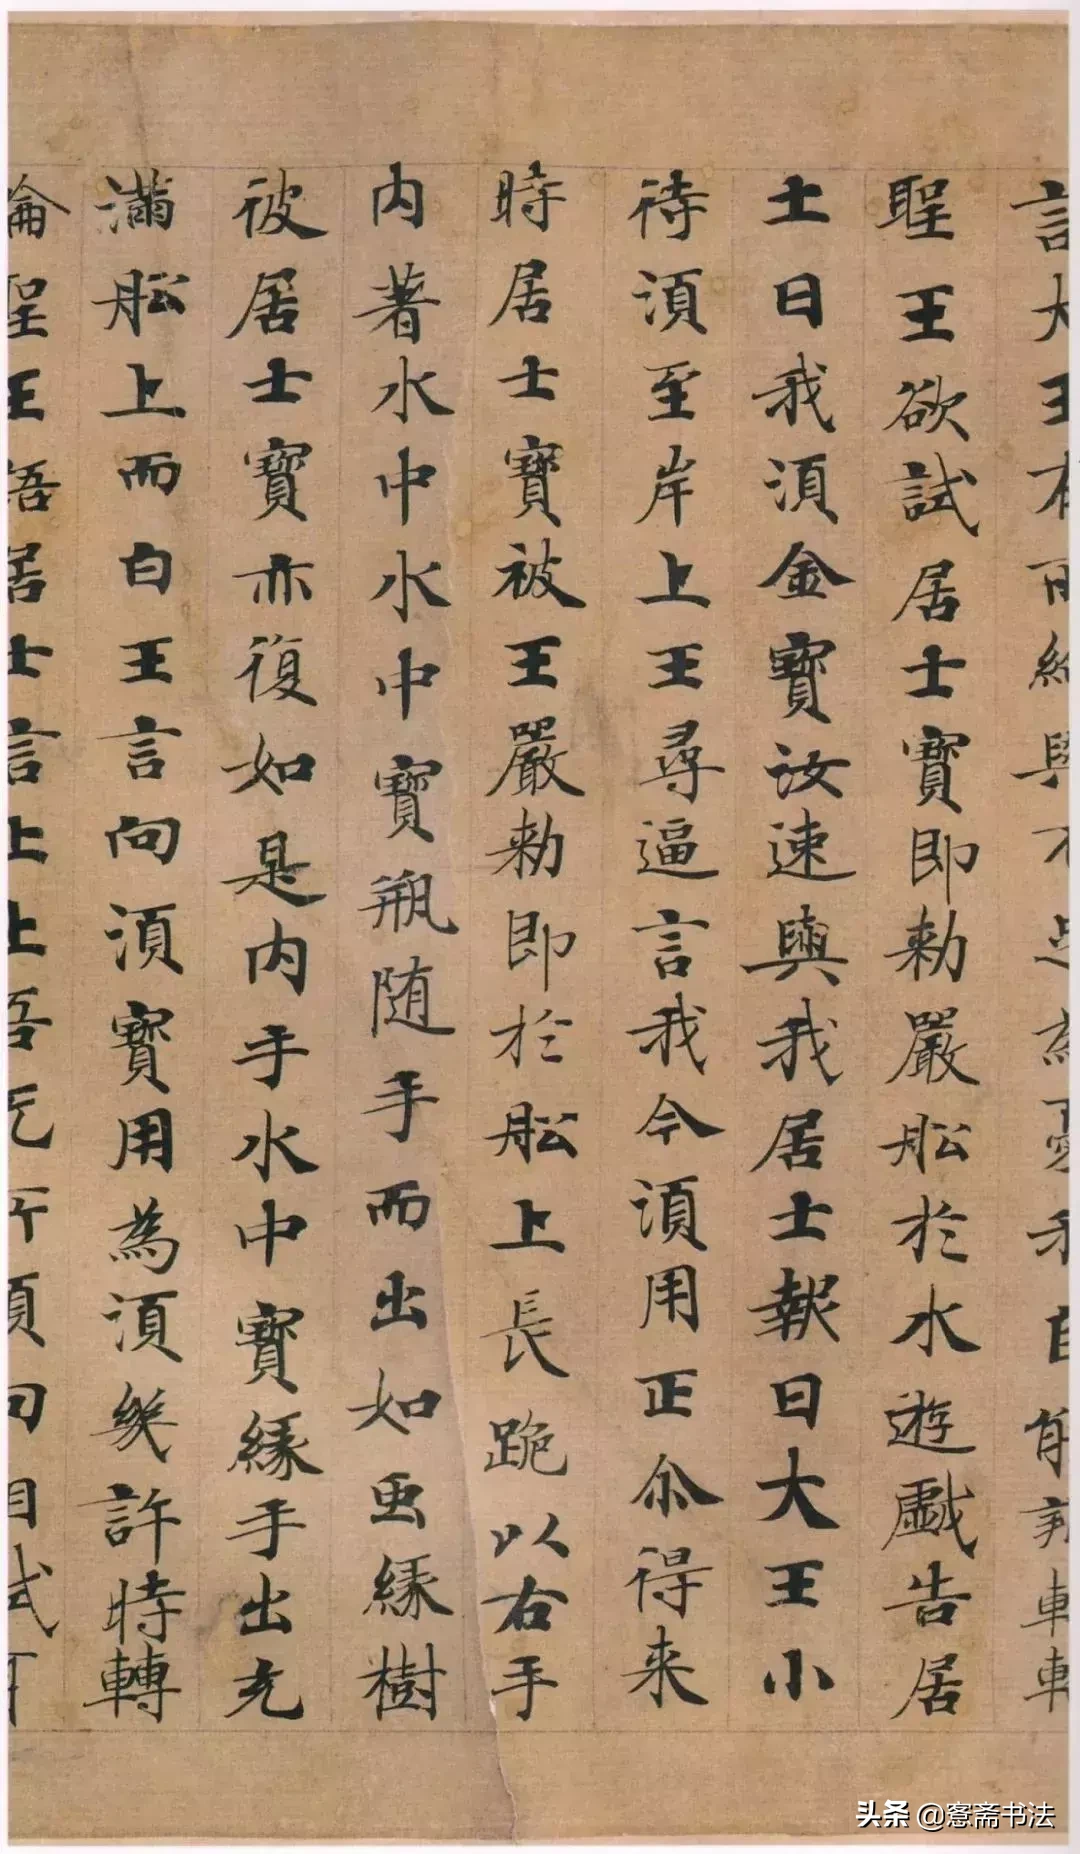 言大王有所
聖王欲試居士寶即勑嚴舩於水遊戲告居
士曰我湏金寶汝速與我居士報曰大王小
待湏至岸上王尋逼言我今湏用正尒得来
時居士寶被王嚴勑即於舩上長跪以右手
内著水中水中寶瓶随手而出如虫緣樹
彼居士寶亦復如是内手水中寶緣手出充
滿舩上而白王言向湏寶用為湏幾許時轉
輪聖王語居士言止止吾无所湏向自試耳
头条 @愙斋书法